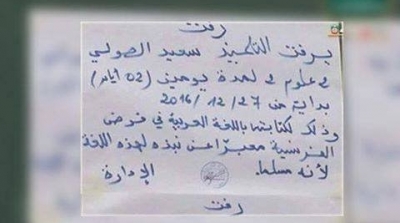 رفت
يرفت التلميذ سعيد الصولي
2 علوم 2 لمدة يومين (02 أيام)
بداية من 27/ 12/ 2016
وذلك لكتابته باللغة العربية في فرض
الفرنسية معبرا عن نبذه لهذه اللغة
لأنه مسلما.
الإدارة
رفت